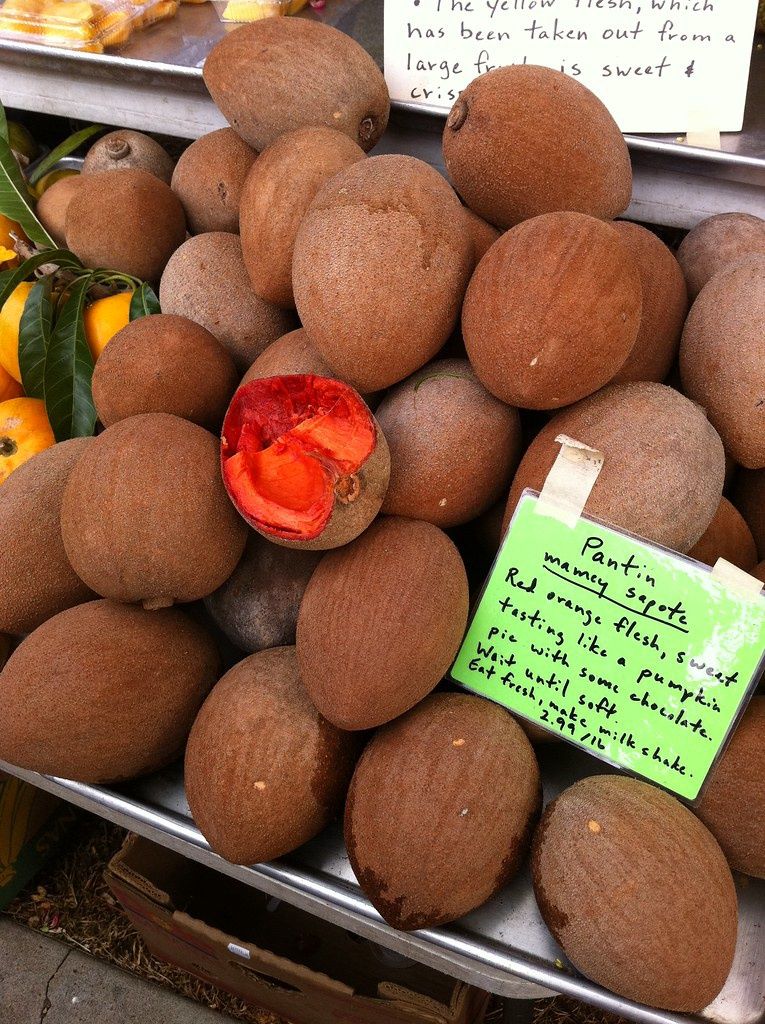 • The yellow flesh, which
has been taken out from a
large is sweet &
Pantin
mamey sapote
Red orange flesh, sweet
tasting like a pumpkin
pie with some chocolate.
Wait until soft
Eat fresh, make milk shake.
2.99/lb